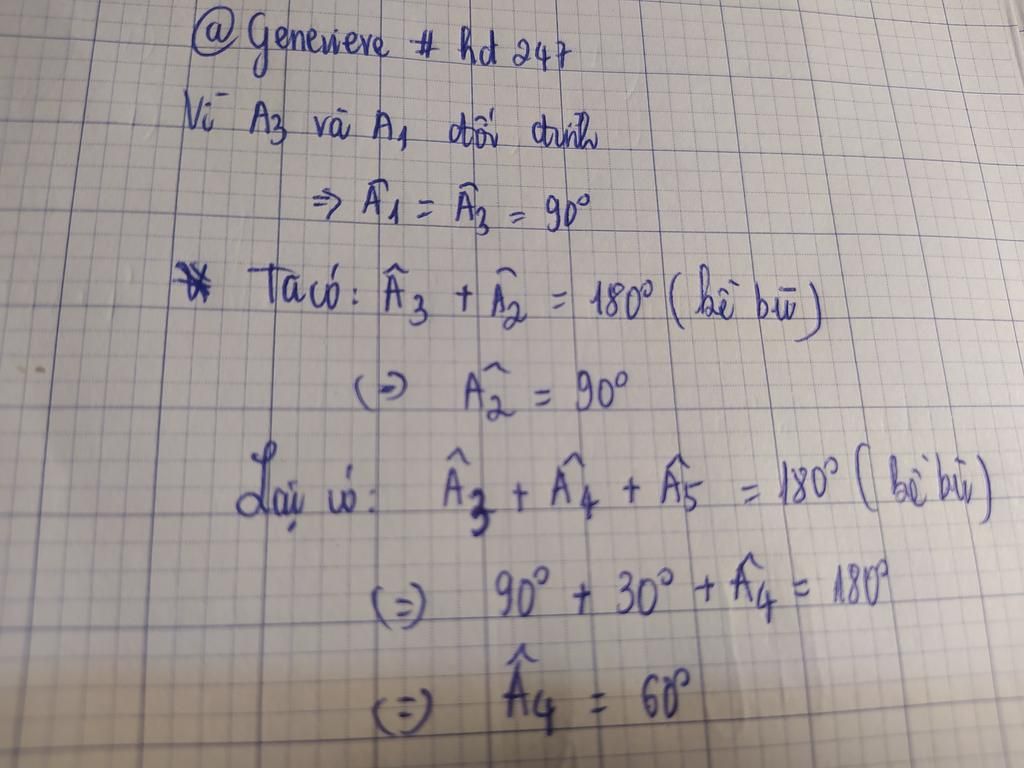 @Genevieve # hd 247
Vì A3 và A1 đối đỉnh
⇒ Â1 = Â3 = 90°
* Ta có: Â3 + Â2 = 180° (kề bù)
(=) Â2 = 90°
Lại có: Â3 + Â4 + Â5 = 180° (kề bù)
(=) 90° + 30° + Â4 = 180°
(=) Â4 = 60°